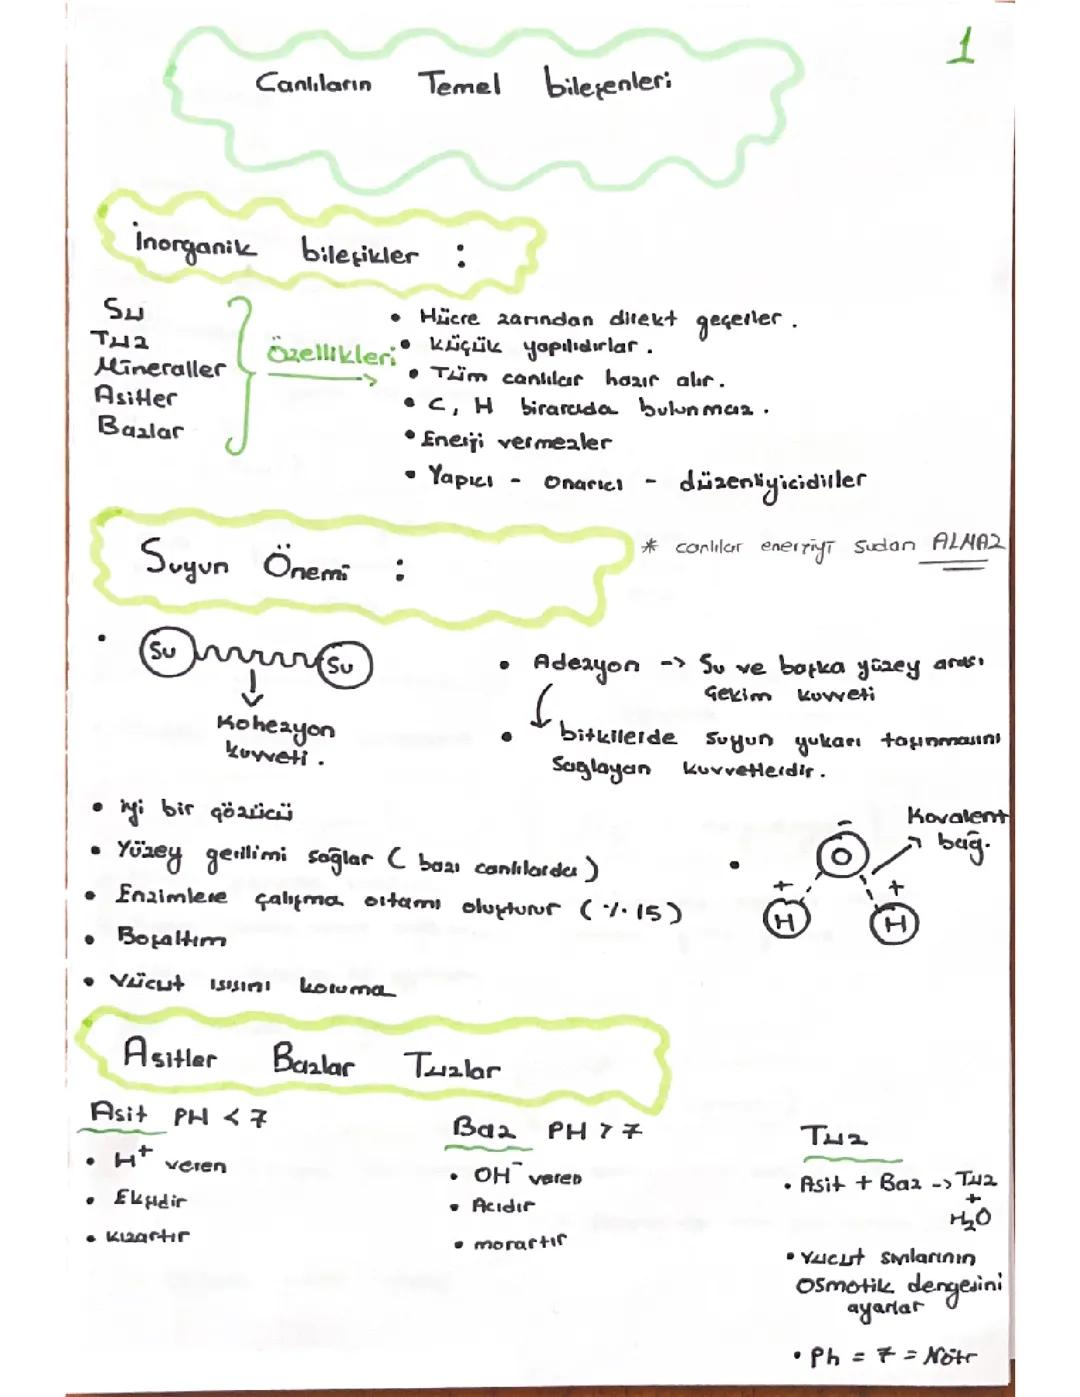 1
Canlıların Temel bileşenleri
İnorganik bileşikler :
Su
Tuz
Mineraller
Asitler
Bazlar
Özellikleri
• Hücre zarından direkt geçerler.
• Küçük yapılıdırlar.
• Tüm canlılar hazır alır.
• C, H birarada bulunmaz.
• Enerji vermezler
• Yapıcı - Onarıcı - düzenliyicidirler
Suyun Önemi :
* canlılar enerjiyi sudan ALMAZ
• Su Su
Kohezyon
kuvveti.
• Adezyon -> Su ve başka yüzey arası
çekim kuvveti
• bitkilerde suyun yukarı taşınmasını
Sağlayan kuvvetlerdir.
• iyi bir çözücü
• Yüzey gerilimi sağlar ( bazı canlılarda )
• Enzimlere çalışma ortamı oluşturur ( % 15 )
• Boşaltım
• Vücut ısısını koruma
Kovalent
bağ.
-
• O
+ +
H H
Asitler Bazlar Tuzlar
Asit PH < 7
• H+ veren
• Ekşidir
• Kızartır
Baz PH > 7
• OH- veren
• Acıdır
• morartır
Tuz
• Asit + Baz -> Tuz
+
H2O
• Vücut sıvılarının
Osmotik dengesini
ayarlar
• Ph = 7 = Nötr